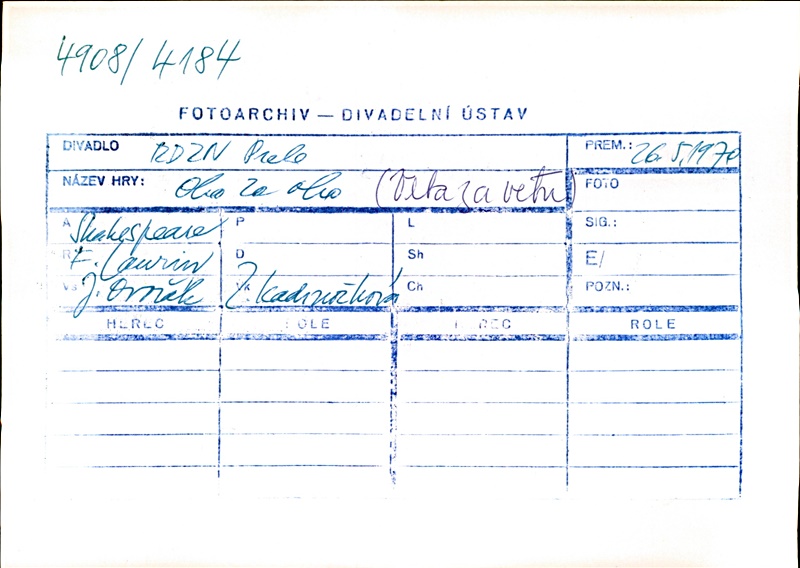 4908/4184
FOTOARCHIV — DIVADELNÍ ÚSTAV
DIVADLO RDZN Praha PREM.: 26.5.1970
NÁZEV HRY: Oko za oko (Veta za vetu) FOTO
A Shakespeare P L SIG.:
R F. Laurin D Sh E/
Vs J. Dvořák Vk Z. Kadrnožková Ch POZN.:
HEREC ROLE HEREC ROLE